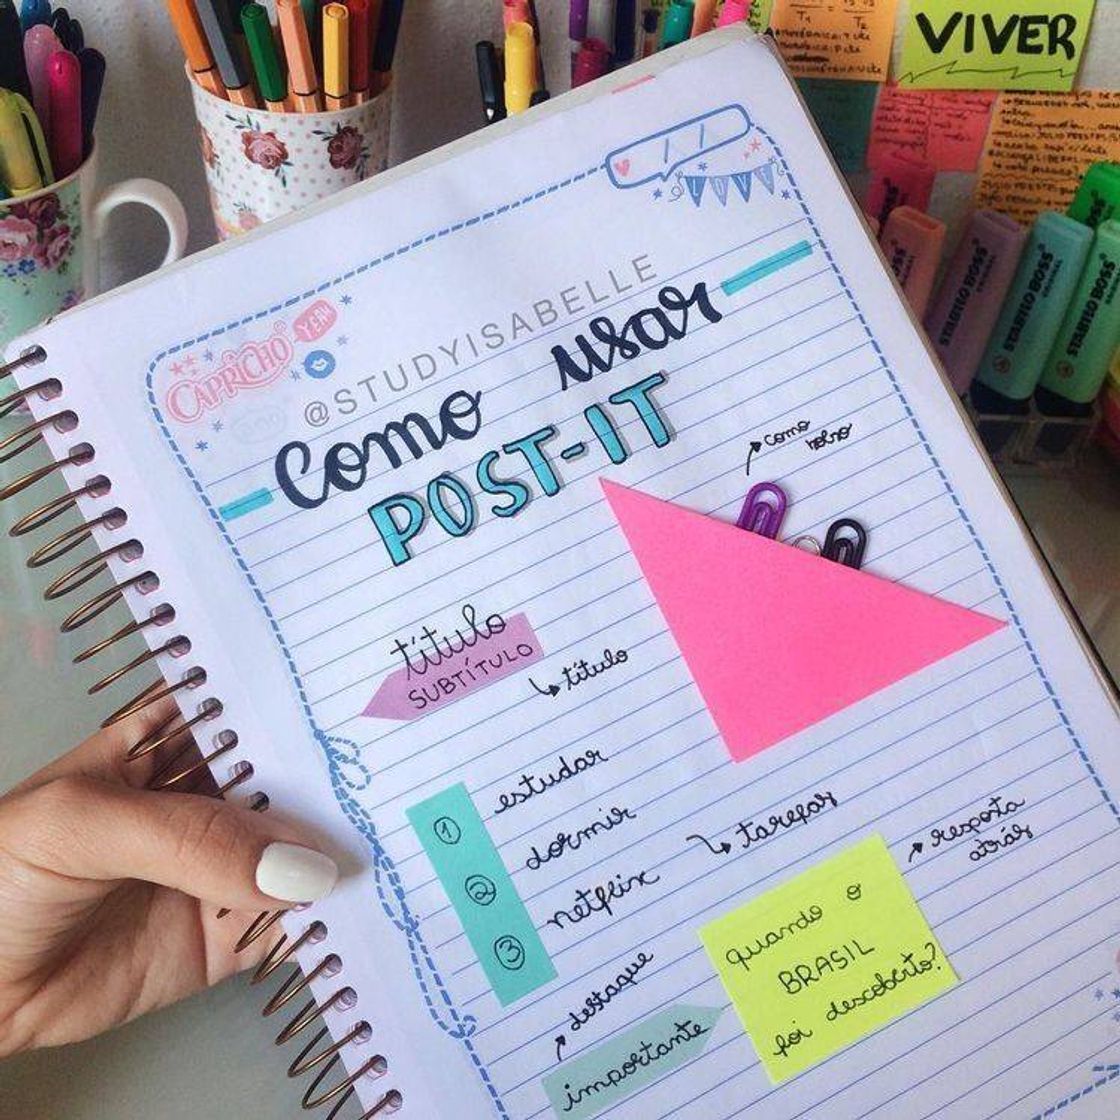 VIVER
LOVE
CAPRICHO
YEAH
@STUDYISABELLE
como usar
POST-IT
como
bolso
título
SUBTÍTULO
título
1 estudar
2 dormir
3 netflix
tarefas
resposta
atrás
quando o
BRASIL
foi descoberto?
destaque
importante
STABILO BOSS
ORIGINAL
STABILO BOSS
ORIGINAL
STABILO BOSS